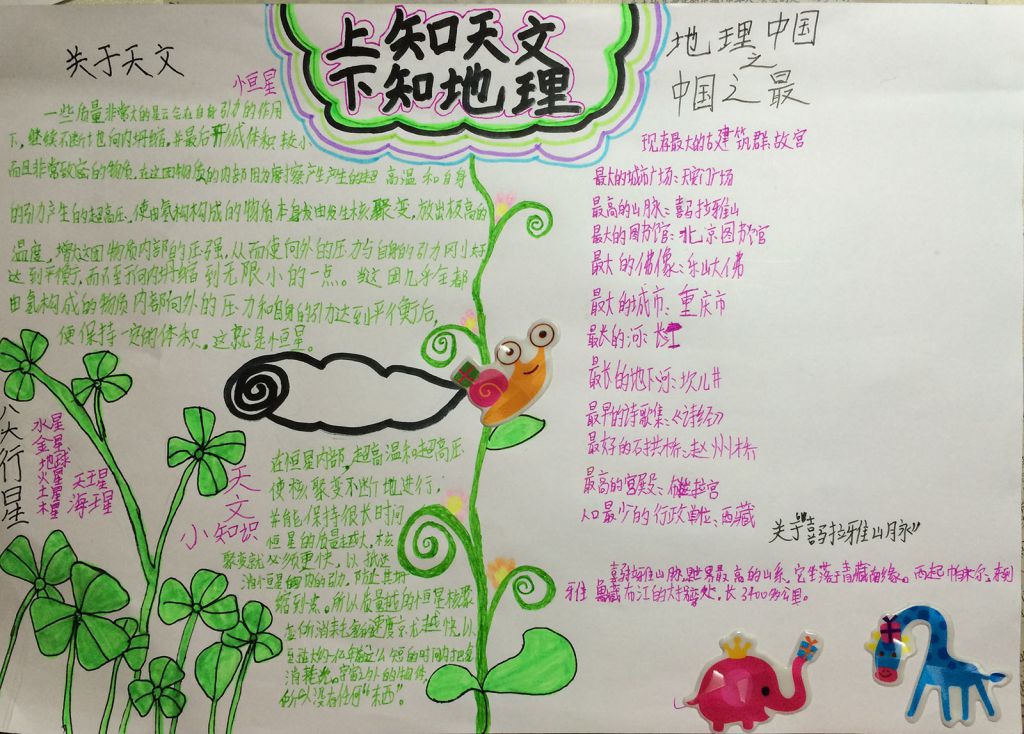 上知天文
下知地理
关于天文
小恒星
一些质量非常大的星云会在自身引力的作用
下,继续不断地向内坍缩,并最后形成体积较小
而且非常致密的物质,在这团物质的内部因为摩擦产生产生的超高温和自身
的引力产生的超高压,使由氢构构成的物质本身发由发生核聚变,放出极高的
温度,增大这团物质内部的压强,从而使向外的压力与自身的引力刚好
达到平衡,而不至于向内坍缩到无限小的一点。当这团几乎全都
由氢构成的物质内部向外的压力和自身的引力达到平衡后,
便保持一定的体积,这就是小恒星。
八大行星
水星
金星
地球
火星
土星
木星
天王星
海王星
天文
小知识
在恒星内部,超高温和超高压
使核聚变不断地进行,
并能保持很长时间
恒星的质量越大,核
聚变就必须更快,以抵
消恒星的引力,防止其坍
缩到点。所以质量越的恒星核聚
消耗
宇宙之外的物体,
所以没有任何“东西”。
地理中国
之
中国之最
现存最大的古建筑群故宫
最大的城市广场:天安门广场
最高的山脉:喜马拉雅山
最大的图书馆:北京图书馆
最大的佛像:乐山大佛
最大的城市:重庆市
最长的河:长江
最长的地下河:坎儿井
最早的诗歌集:《诗经》
最好的石拱桥:赵州桥
最高的宫殿:布达拉宫
人口最少的行政单位:西藏
关于“喜马拉雅山脉”
喜马拉雅山脉是世界最高的山系,它坐落于青藏南缘。西起帕米尔,东到
雅鲁藏布江的大拐弯处,长2400多公里。